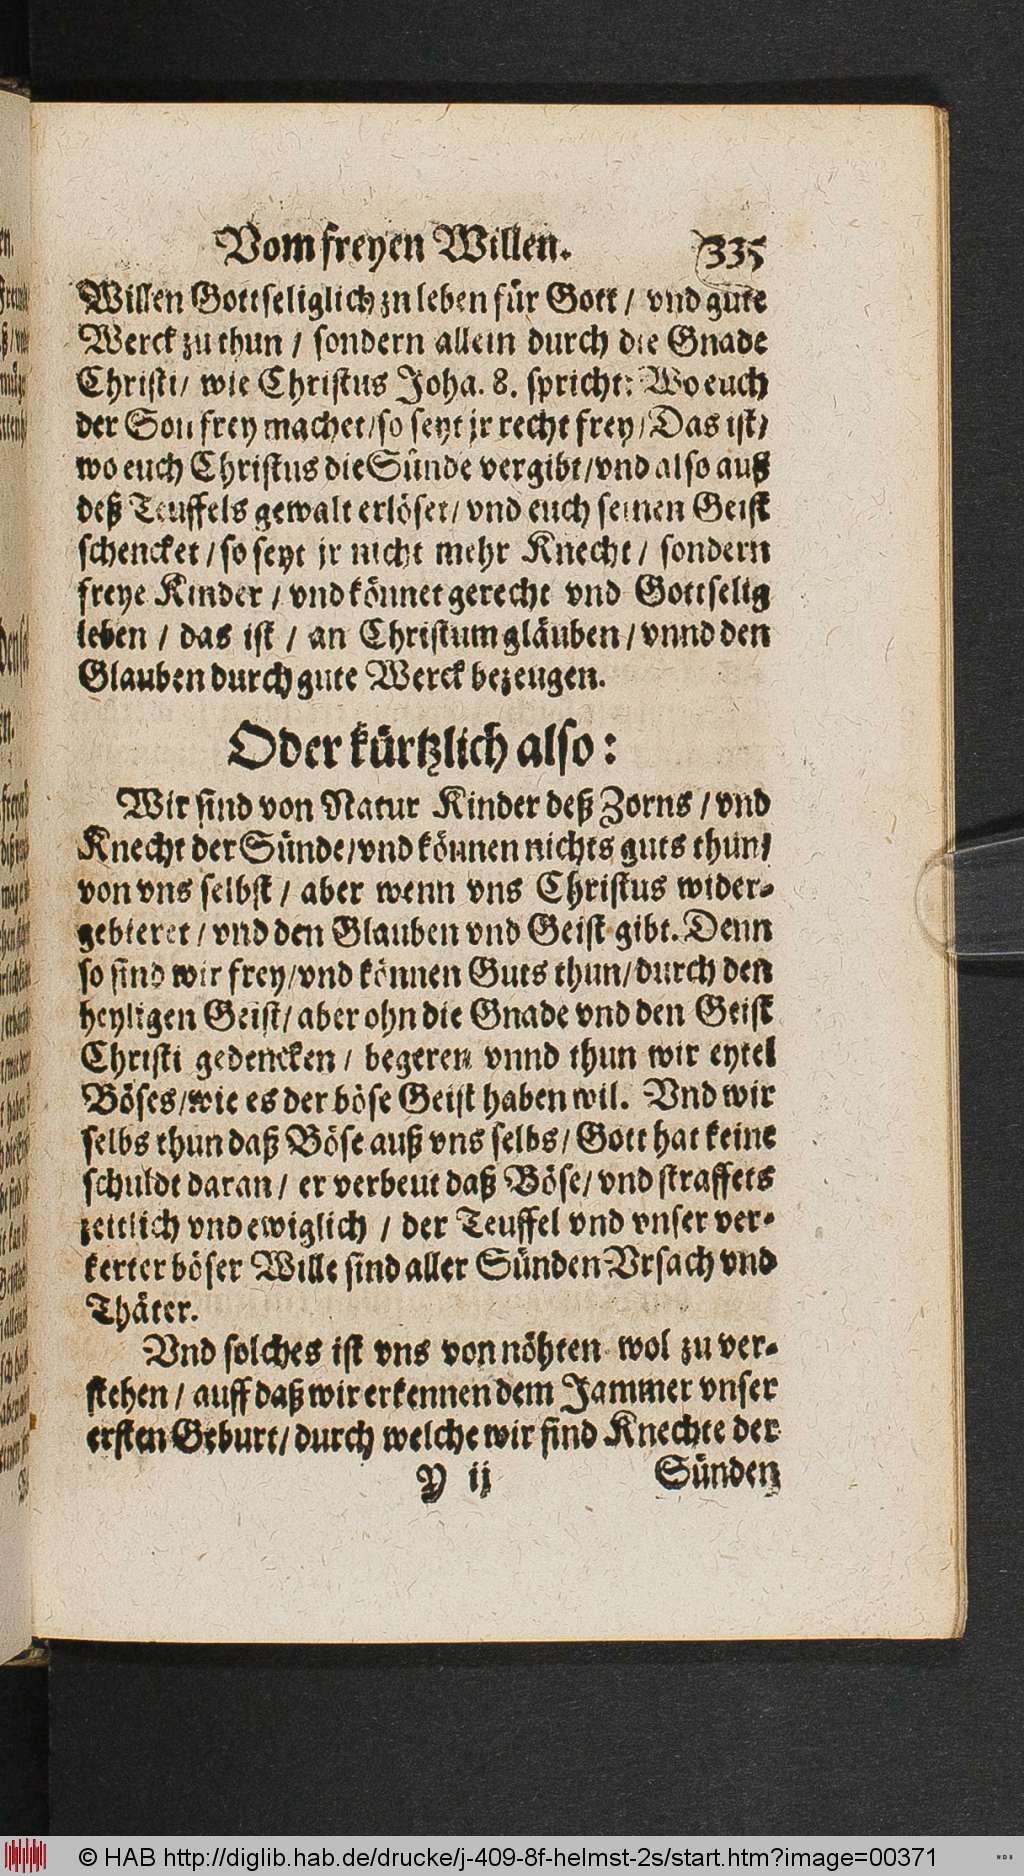 Vom freyen Willen. 335
Willen Gottseliglich zu leben für Gott / vnd gute
Werck zu thun / sondern allein durch die Gnade
Christi / wie Christus Joha. 8. spricht: Wo euch
der Son frey machet / so seyt jr recht frey / Das ist /
wo euch Christus die Sünde vergibt / vnd also auß
deß Teuffels gewalt erlöset / vnd euch seinen Geist
schencket / so seyt jr nicht mehr Knecht / sondern
freye Kinder / vnd könnet gerecht vnd Gottselig
leben / das ist / an Christum gläuben / vnnd den
Glauben durch gute Werck bezeugen.
Oder kürtzlich also:
Wir sind von Natur Kinder deß Zorns / vnd
Knecht der Sünde / vnd können nichts guts thun /
von vns selbst / aber wenn vns Christus wider-
gebieret / vnd den Glauben vnd Geist gibt. Denn
so sind wir frey / vnd können Guts thun / durch den
heyligen Geist / aber ohn die Gnade vnd den Geist
Christi gedencken / begeren vnnd thun wir eytel
Böses / wie es der böse Geist haben wil. Vnd wir
selbs thun daß Böse auß vns selbs / Gott hat keine
schuldt daran / er verbeut daß Böse / vnd straffets
zeitlich vnd ewiglich / der Teuffel vnd vnser ver-
kerter böser Wille sind aller Sünden Vrsach vnd
Thäter.
Vnd solches ist vns von nöhten wol zu ver-
stehen / auff daß wir erkennen dem Jammer vnser
ersten Geburt / durch welche wir sind Knechte der
Y ij Sünden
© HAB http://diglib.hab.de/drucke/j-409-8f-helmst-2s/start.htm?image=00371